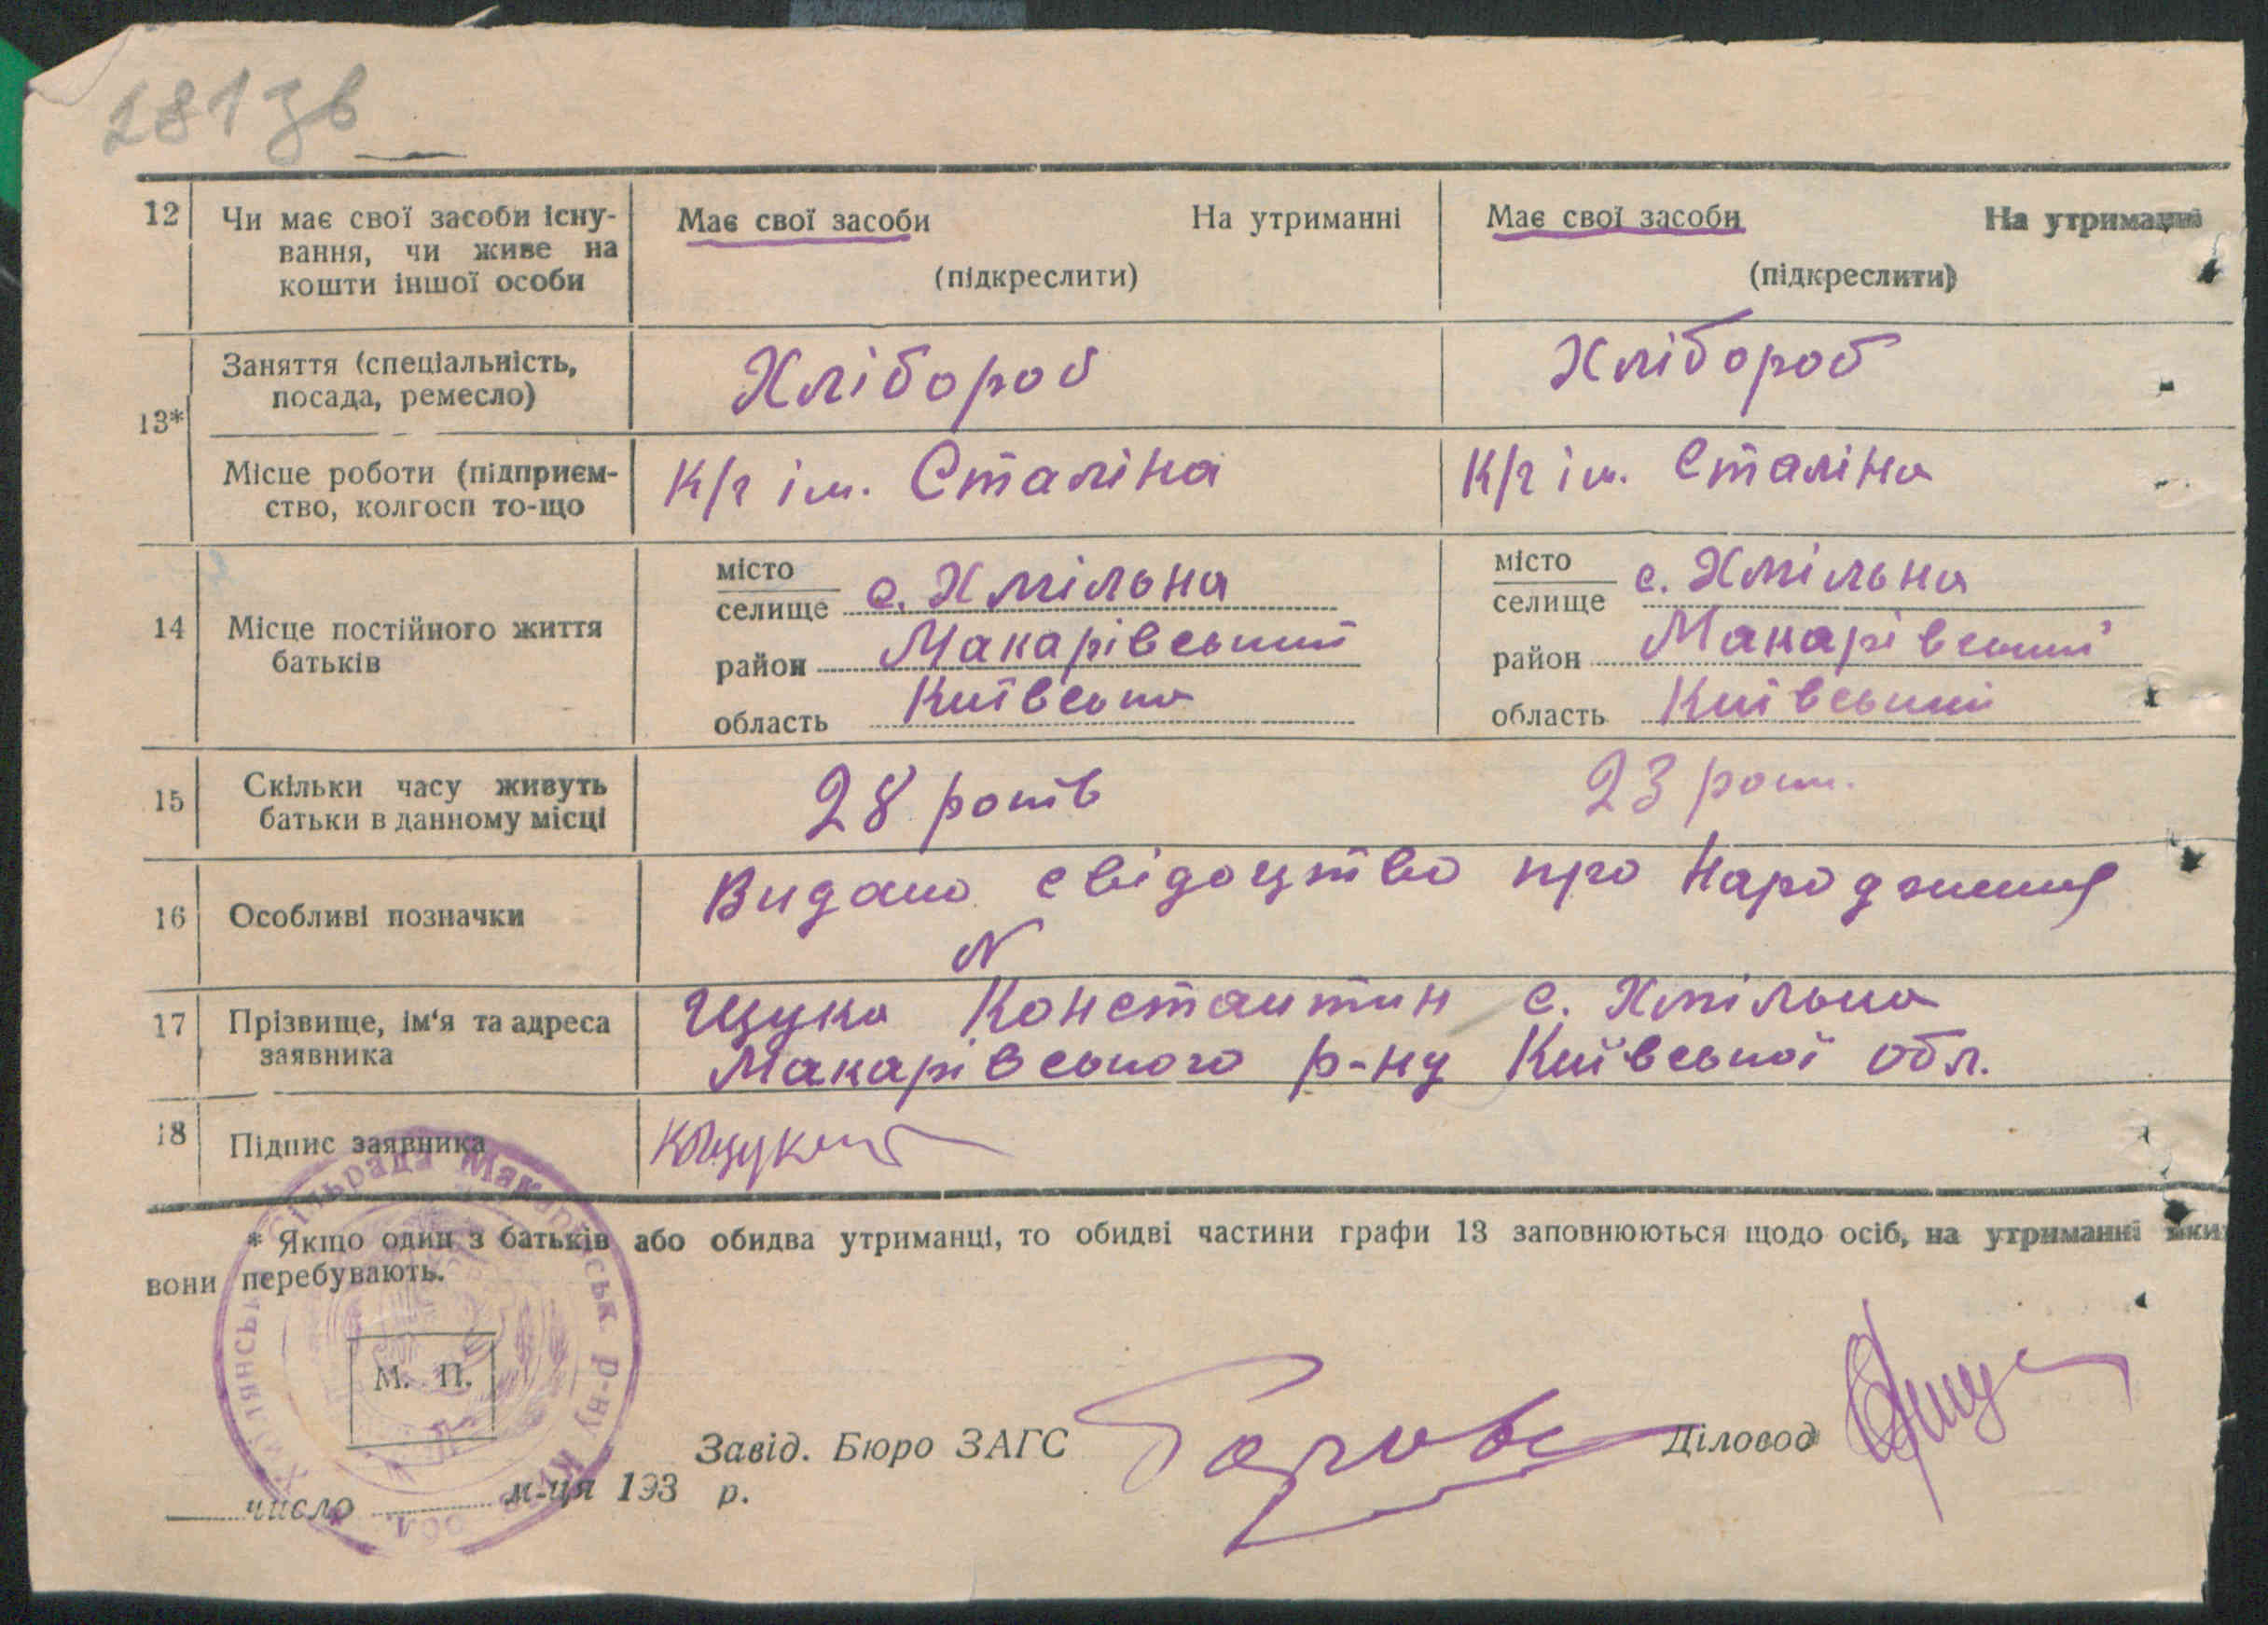 281 зв
12 Чи має свої засоби існу- Має свої засоби На утриманні Має свої засоби На утриманні
вання, чи живе на
кошти іншої особи (підкреслити) (підкреслити)
Заняття (спеціальність, Хлібороб Хлібороб
посада, ремесло)
13*
Місце роботи (підприєм- К/г ім. Сталіна К/г ім. Сталіна
ство, колгосп то-що
місто с. Хмільна місто с. Хмільна
селище селище
14 Місце постійного життя район Макарівський район Макарівський
батьків
область Київська область Київський
15 Скільки часу живуть 28 років 23 роки.
батьки в данному місці
16 Особливі позначки Видано свідоцтво про народження
N
17 Прізвище, ім'я та адреса Щука Константин с. Хмільна
заявника Макарівського р-ну Київської обл.
18 Підпис заявника
* Якщо один з батьків або обидва утриманці, то обидві частини графи 13 заповнюються щодо осіб, на утриманні яких
вони перебувають.
Сільрада Макарівськ. р-ну
М. П.
Завід. Бюро ЗАГС Діловод
число м-ця 193 р.